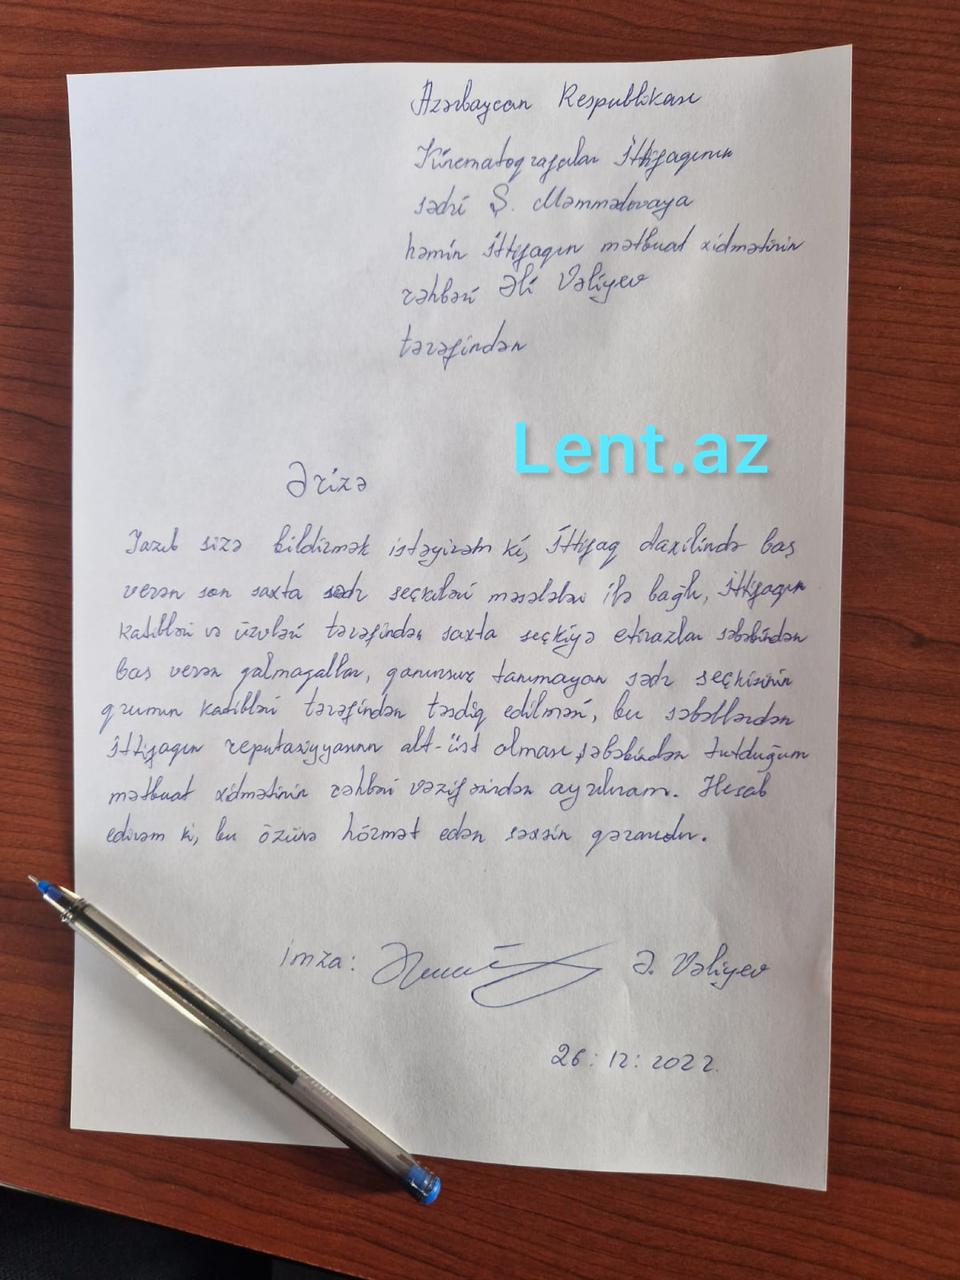 Azərbaycan Respublikası
Kinematoqrafçılar İttifaqının
sədri Ş. Məmmədovaya
həmin İttifaqın mətbuat xidmətinin
rəhbəri Əli Vəliyev
tərəfindən
Lent.az
Ərizə
Yazıb sizə bildirmək istəyirəm ki, İttifaq daxilində baş
verən son saxta sədr seçkiləri məsələləri ilə bağlı, İttifaqın
katibləri və üzvləri tərəfindən saxta seçkiyə etirazlar səbəbindən
baş verən qalmaqallar, qanunsuz tanımayan sədr seçkisinin
qrumun katibləri tərəfindən təsdiq edilməsi, bu səbəblərdən
İttifaqın reputasiyyasının alt-üst olması səbəbindən tutduğum
mətbuat xidmətinin rəhbəri vəzifəsindən ayrılıram. Hesab
edirəm ki, bu özünə hörmət edən şəxsin qərarıdır.
imza: Ə. Vəliyev
26:12:2022